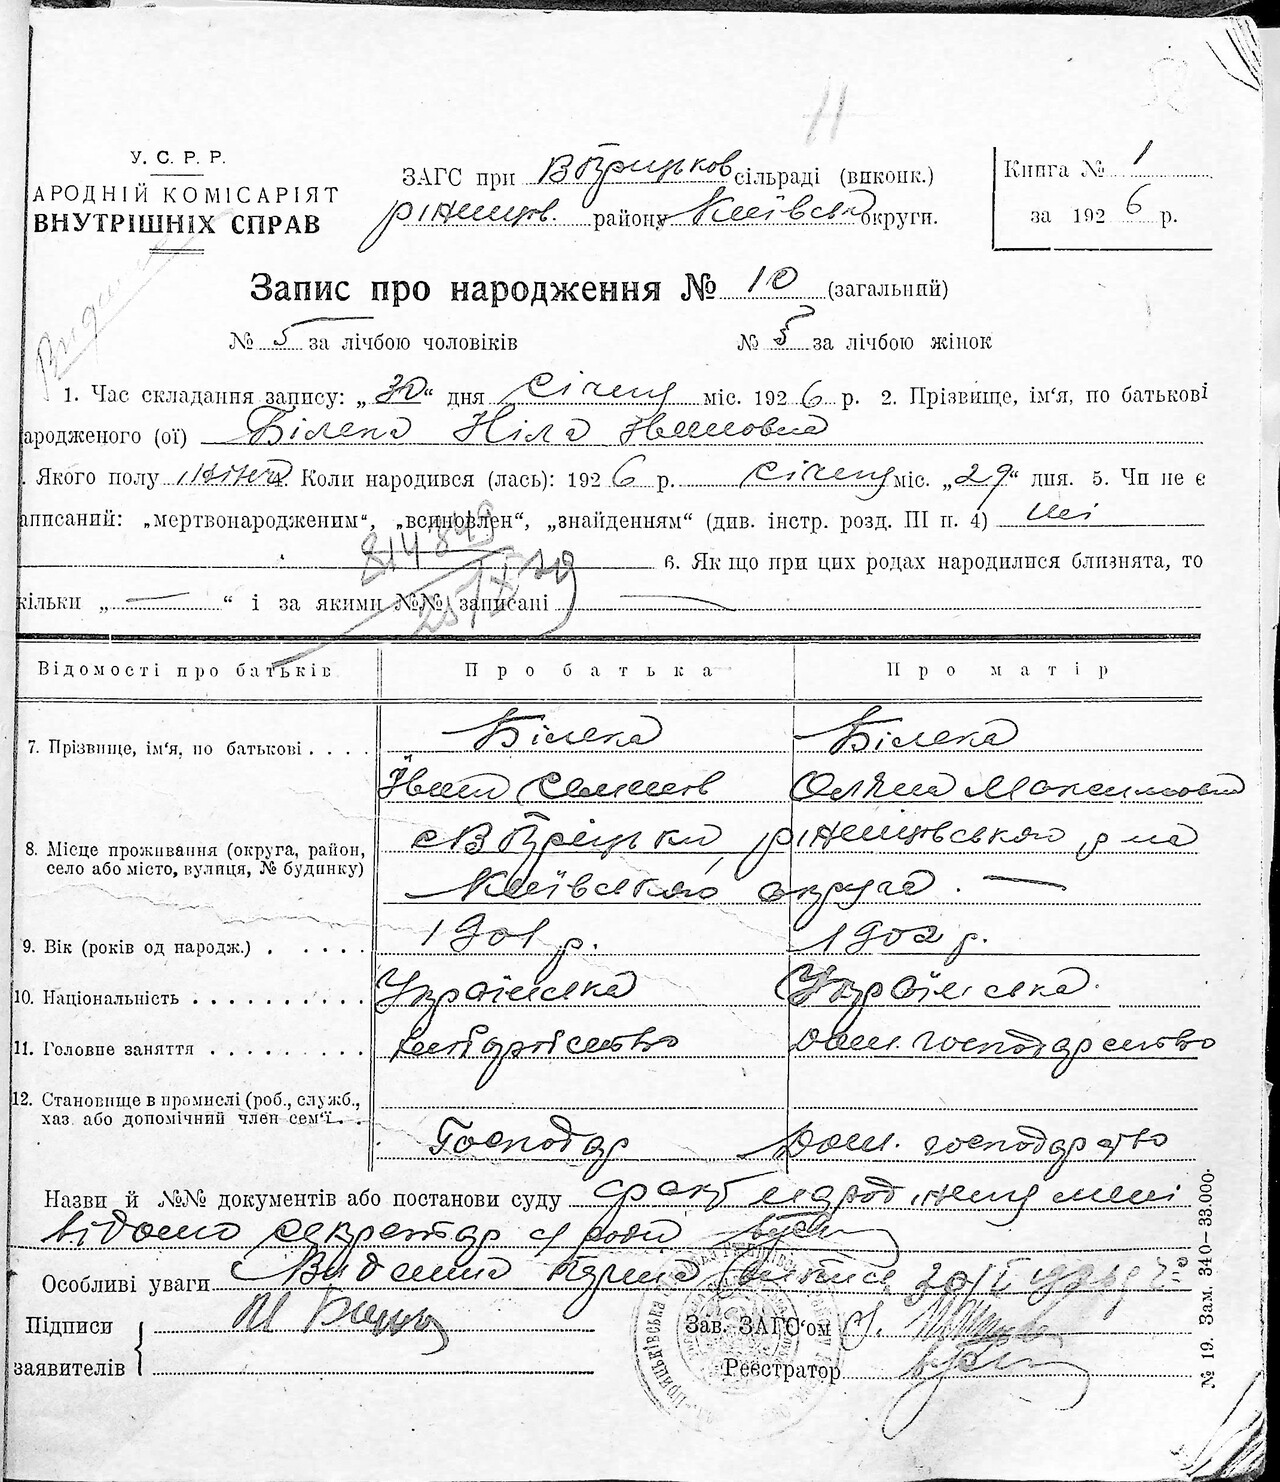 У. С. Р. Р.
АРОДНІЙ КОМІСАРІЯТ
ВНУТРІШНІХ СПРАВ
ЗАГС при сільраді (виконк.)
району Київськ округи.
Книга № 1
за 1926 р.
Запис про народження № 10 (загальний)
№ 5 за лічбою чоловіків № 5 за лічбою жінок
1. Час складання запису: „30“ дня січеня міс. 1926 р. 2. Прізвище, ім'я, по батькові
ародженого (ої) Білека Ніла Івановна
. Якого полу жіноч. Коли народився (лась): 1926 р. січеня міс. „29“ дня. 5. Чи не є
аписаний: „мертвонародженим“, „всиновлен“, „знайденням“ (див. інстр. розд. III п. 4) ні
814849
6. Як що при цих родах народилися близнята, то
кільки „ — “ і за якими №№ записані —
25/X 29
Відомості про батьків Про батька Про матір
7. Прізвище, ім'я, по батькові . . . . Білека Білека
Іван Семенов Оляна Максимовна
8. Місце проживання (округа, район,
село або місто, вулиця, № будинку)
Київської округа. —
9. Вік (років од народж.) . . . . . . 1901 р. 1902 р.
10. Національність . . . . . . . . . . Українська Українська
11. Головне заняття . . . . . . . . . хліборобство Дом. господарство
12. Становище в промислі (роб., служб.,
хаз або допомічний член сем'ї. . .
Господар Дом. господарство
Назви й №№ документів або постанови суду факт народженя мені
відомо секретар с ради
Особливі уваги Видана
Підписи
заявителів
Зав. ЗАГС'ом
Реєстратор
№ 19. Зам. 340—33.000.